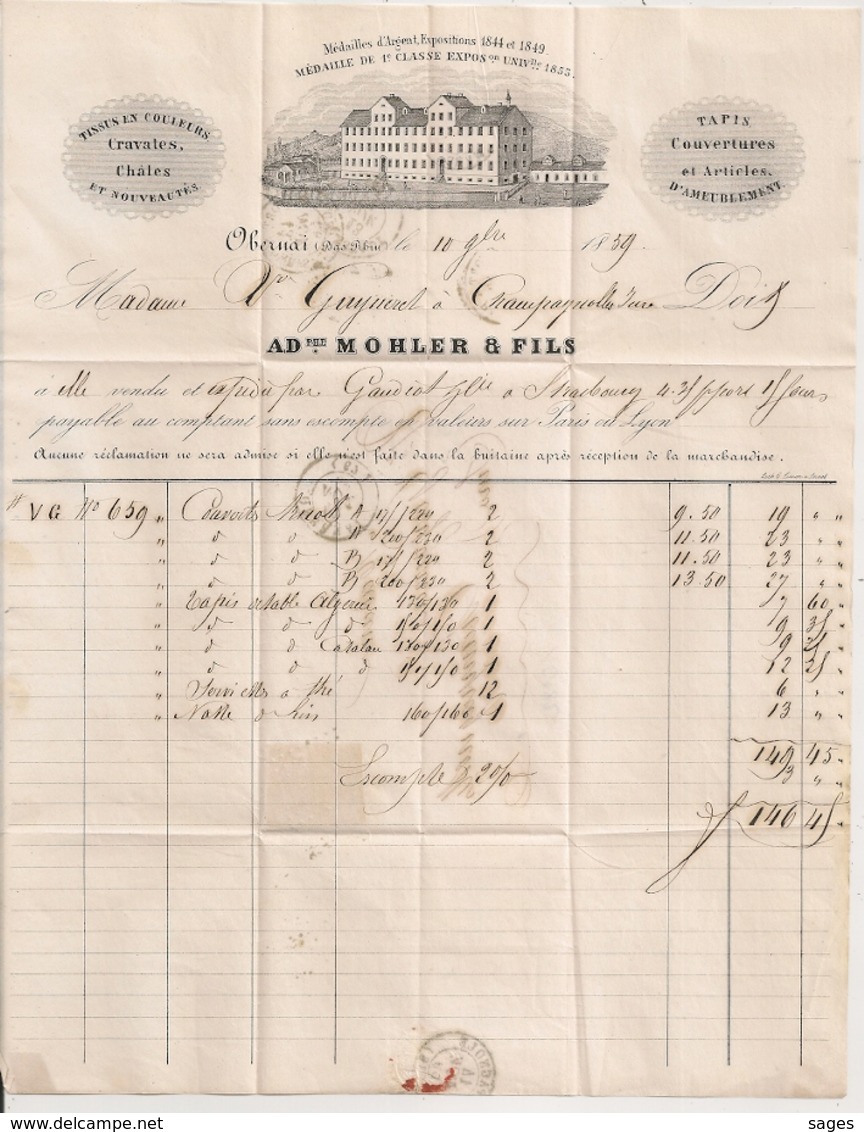 Médailles d'Argent, Expositions 1844 et 1849.
MÉDAILLE DE 1e CLASSE EXPOSon UNIVlle 1855.
TISSUS EN COULEURS
Cravates,
Châles
ET NOUVEAUTÉS.
TAPIS,
Couvertures
et Articles
D'AMEUBLEMENT.
Obernai (Bas Rhin) le 10 9bre 1859.
Madame Vve Guyneret à Champagnolles Jura Doit
ADPHE. MOHLER & FILS
à elle vendu et expédié par Gaudiot & Cie à Strasbourg
payable au comptant sans escompte en valeurs sur Paris ou Lyon
Aucune réclamation ne sera admise si elle n'est faite dans la huitaine après réception de la marchandise.
VG No 659 " A 2 9.50 19 " "
" d d A 200/230 2 11.50 23 " "
" d d B 2 11.50 23 " "
" d d B 200/230 2 13.50 27 " "
" Tapis de table Algérien 130/130 1 7 60 "
" d d d 150/150 1 9 35 "
" d d Catalan 130/130 1 9 25 "
" d d d 150/150 1 12 25 "
" Serviettes à thé 12 6 " "
" 160/160 1 13 " "
149 45 "
Escompte 2 0/0 3 " "
146 45 "
sages